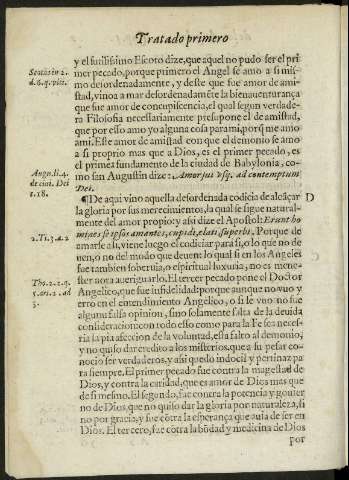 Tratado primero
Scotus in 2.
d. 6. q. vlti.
y el sutilissimo Escoto dize, que aquel no pudo ser el pri
mer pecado, porque primero el Angel se amo a si mis-
mo desordenadamente, y deste que fue amor de ami-
stad, vino a a mar desordenadamẽte la bienauenturança
que fue amor de concupiscencia, el qual segun verdade-
ra Filosofia necessariamente presupone el de amistad,
que por esso amo yo alguna cosa para mi, porq̃ me amo
a mi. Este amor de amistad con que el demonio se amo
a si proprio mas que a Dios, es el primer pecado, es
el primer fundamento de la ciudad de Babylonia, co-
mo san Augustin dize: Amor sui vsq; ad contemptum
Dei.
Augu. li. 4.
de ciui. Dei
c. 18.
¶De aqui vino aquella desordenada codicia de alcãçar
D
la gloria por sus merecimientos, la qual se sigue natural-
mente del amor propio, y assi dize el Apostol: Erunt ho
mines se ipsos amantes, cupidi, elati, superbi. Porque de
2. Ti. 3. a. 2
amarse a si, viene luego el codiciar para si, o lo que no de
uen, o no del modo que deuen: lo qual si en los Angeles
fue tambien soberuia, o espiritual luxuria, no es mene-
ster aora aueriguarlo. El tercer pecado pone el Doctor
Tho. 2. 2. q.
5. ar. 2. ad
3.
Angelico, que fue infidelidad: porque aunque no vuo y
erro en el entendimiento Angelico, o si le vuo no fue
alguna falsa opinion, sino solamente falta de la deuida
consideracion: con todo esso como para la Fe sea necess-
ria la pia afeccion de la voluntad, esta falto al demonio,
y no quiso dar credito a los misterios, que a su pesar co-
nocio ser verdaderos, y assi quedo indocil y pertinaz pa
ra siempre. El primer pecado fue contra la magestad de
Dios, y contra la caridad, que es amor de Dios mas que
de si mesmo. El segundo, fue contra la potencia y gouier
no de Dios, que no quiso dar la gloria por naturaleza, si
no por gracia, y fue cõtra la esperança que auia de ser en
Dios. El tercero, fue cõtra la bõdad y medicina de Dios
por